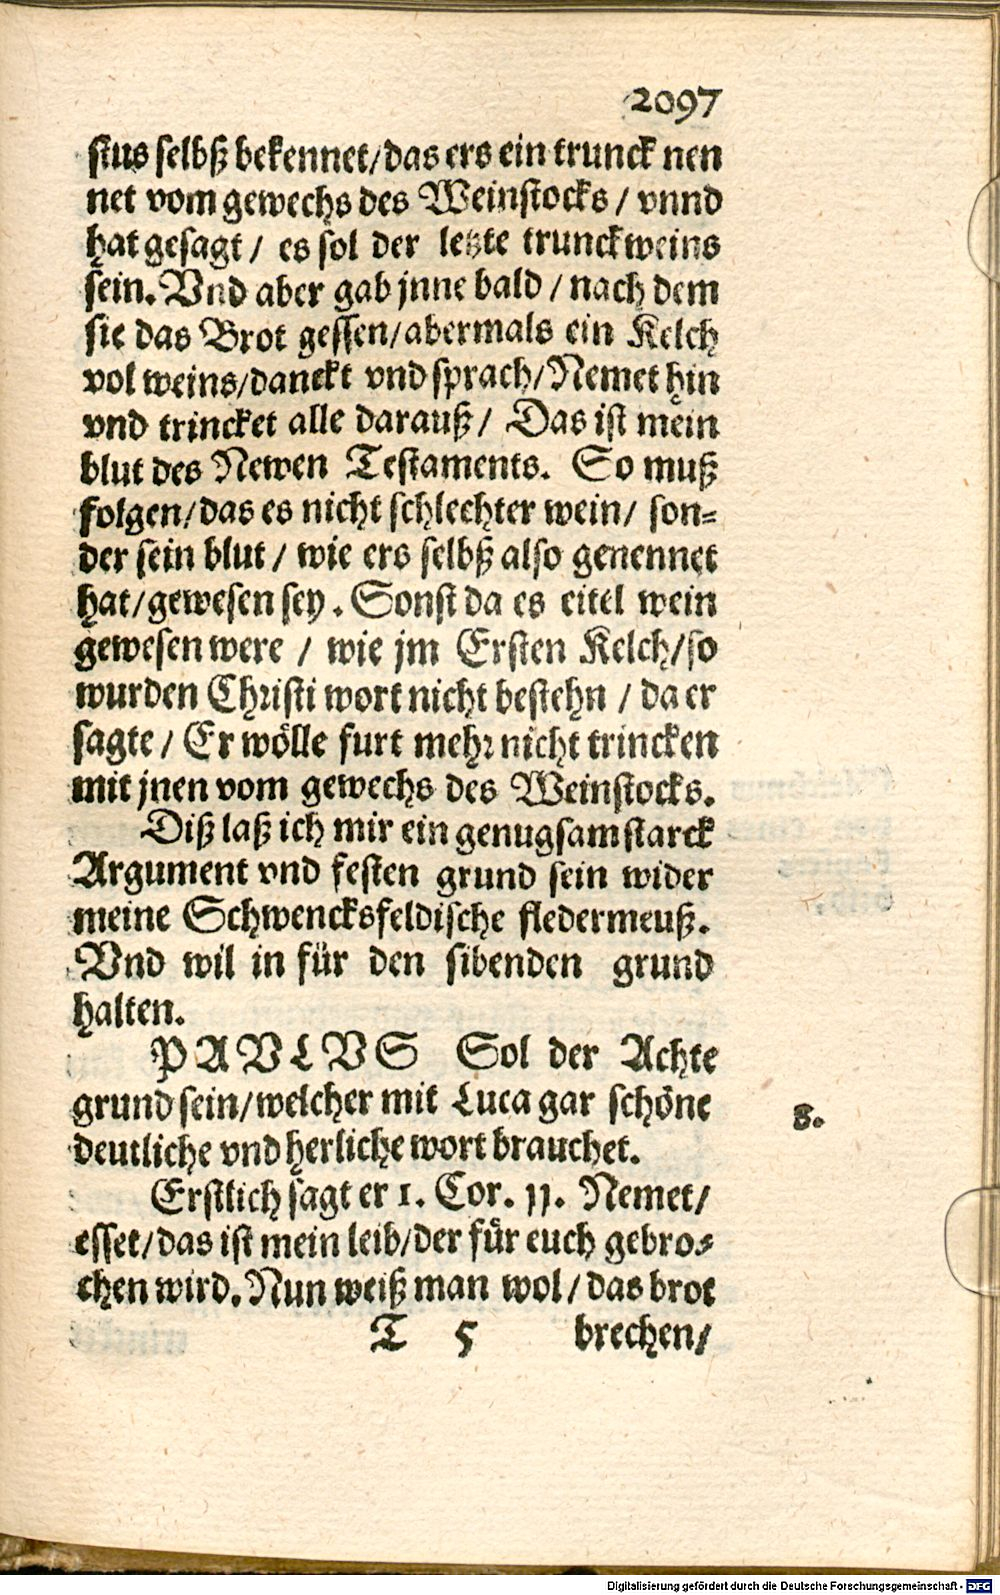 2097
stus selbß bekennet/das ers ein trunck nen
net vom gewechs des Weinstocks / vnnd
hat gesagt / es sol der letzte trunck weins
sein. Vnd aber gab jnne bald / nach dem
sie das Brot gessen/abermals ein Kelch
vol weins/danckt vnd sprach/Nemet hin
vnd trincket alle darauß / Das ist mein
blut des Newen Testaments. So muß
folgen/das es nicht schlechter wein/ son=
der sein blut / wie ers selbß also genennet
hat/gewesen sey. Sonst da es eitel wein
gewesen were / wie jm Ersten Kelch/so
wurden Christi wort nicht bestehn / da er
sagte / Er wölle furt mehr nicht trincken
mit jnen vom gewechs des Weinstocks.
Diß laß ich mir ein genugsam starck
Argument vnd festen grund sein wider
meine Schwencksfeldische fledermeuß.
Vnd wil in für den sibenden grund
halten.
PAVLVS Sol der Achte
grund sein/welcher mit Luca gar schöne
deutliche vnd herliche wort brauchet.
8.
Erstlich sagt er 1. Cor. 11. Nemet/
esset/das ist mein leib/der für euch gebro=
chen wird. Nun weiß man wol / das brot
T 5 brechen/
Digitalisierung gefördert durch die Deutsche Forschungsgemeinschaft - DFG